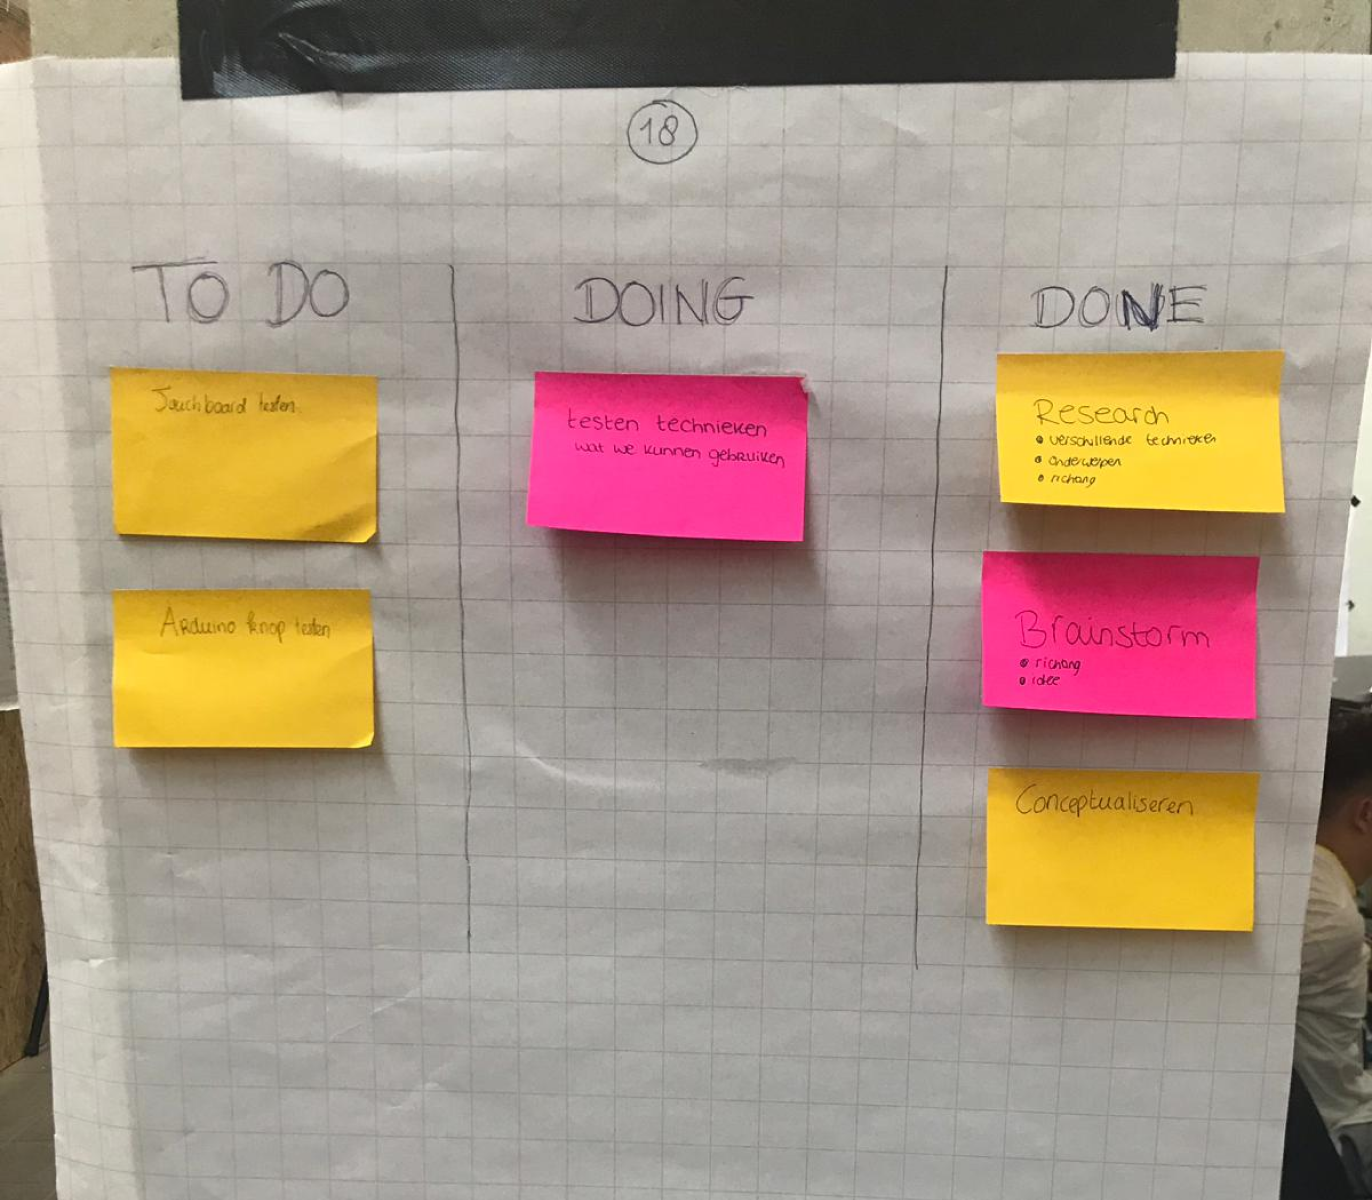 18
TO DO
DOING
DONE
Touchboard testen
Arduino knop testen
testen technieken
wat we kunnen gebruiken
Research
• verschillende technieken
• onderwerpen
• richting
Brainstorm
• richting
• idee
Conceptualiseren